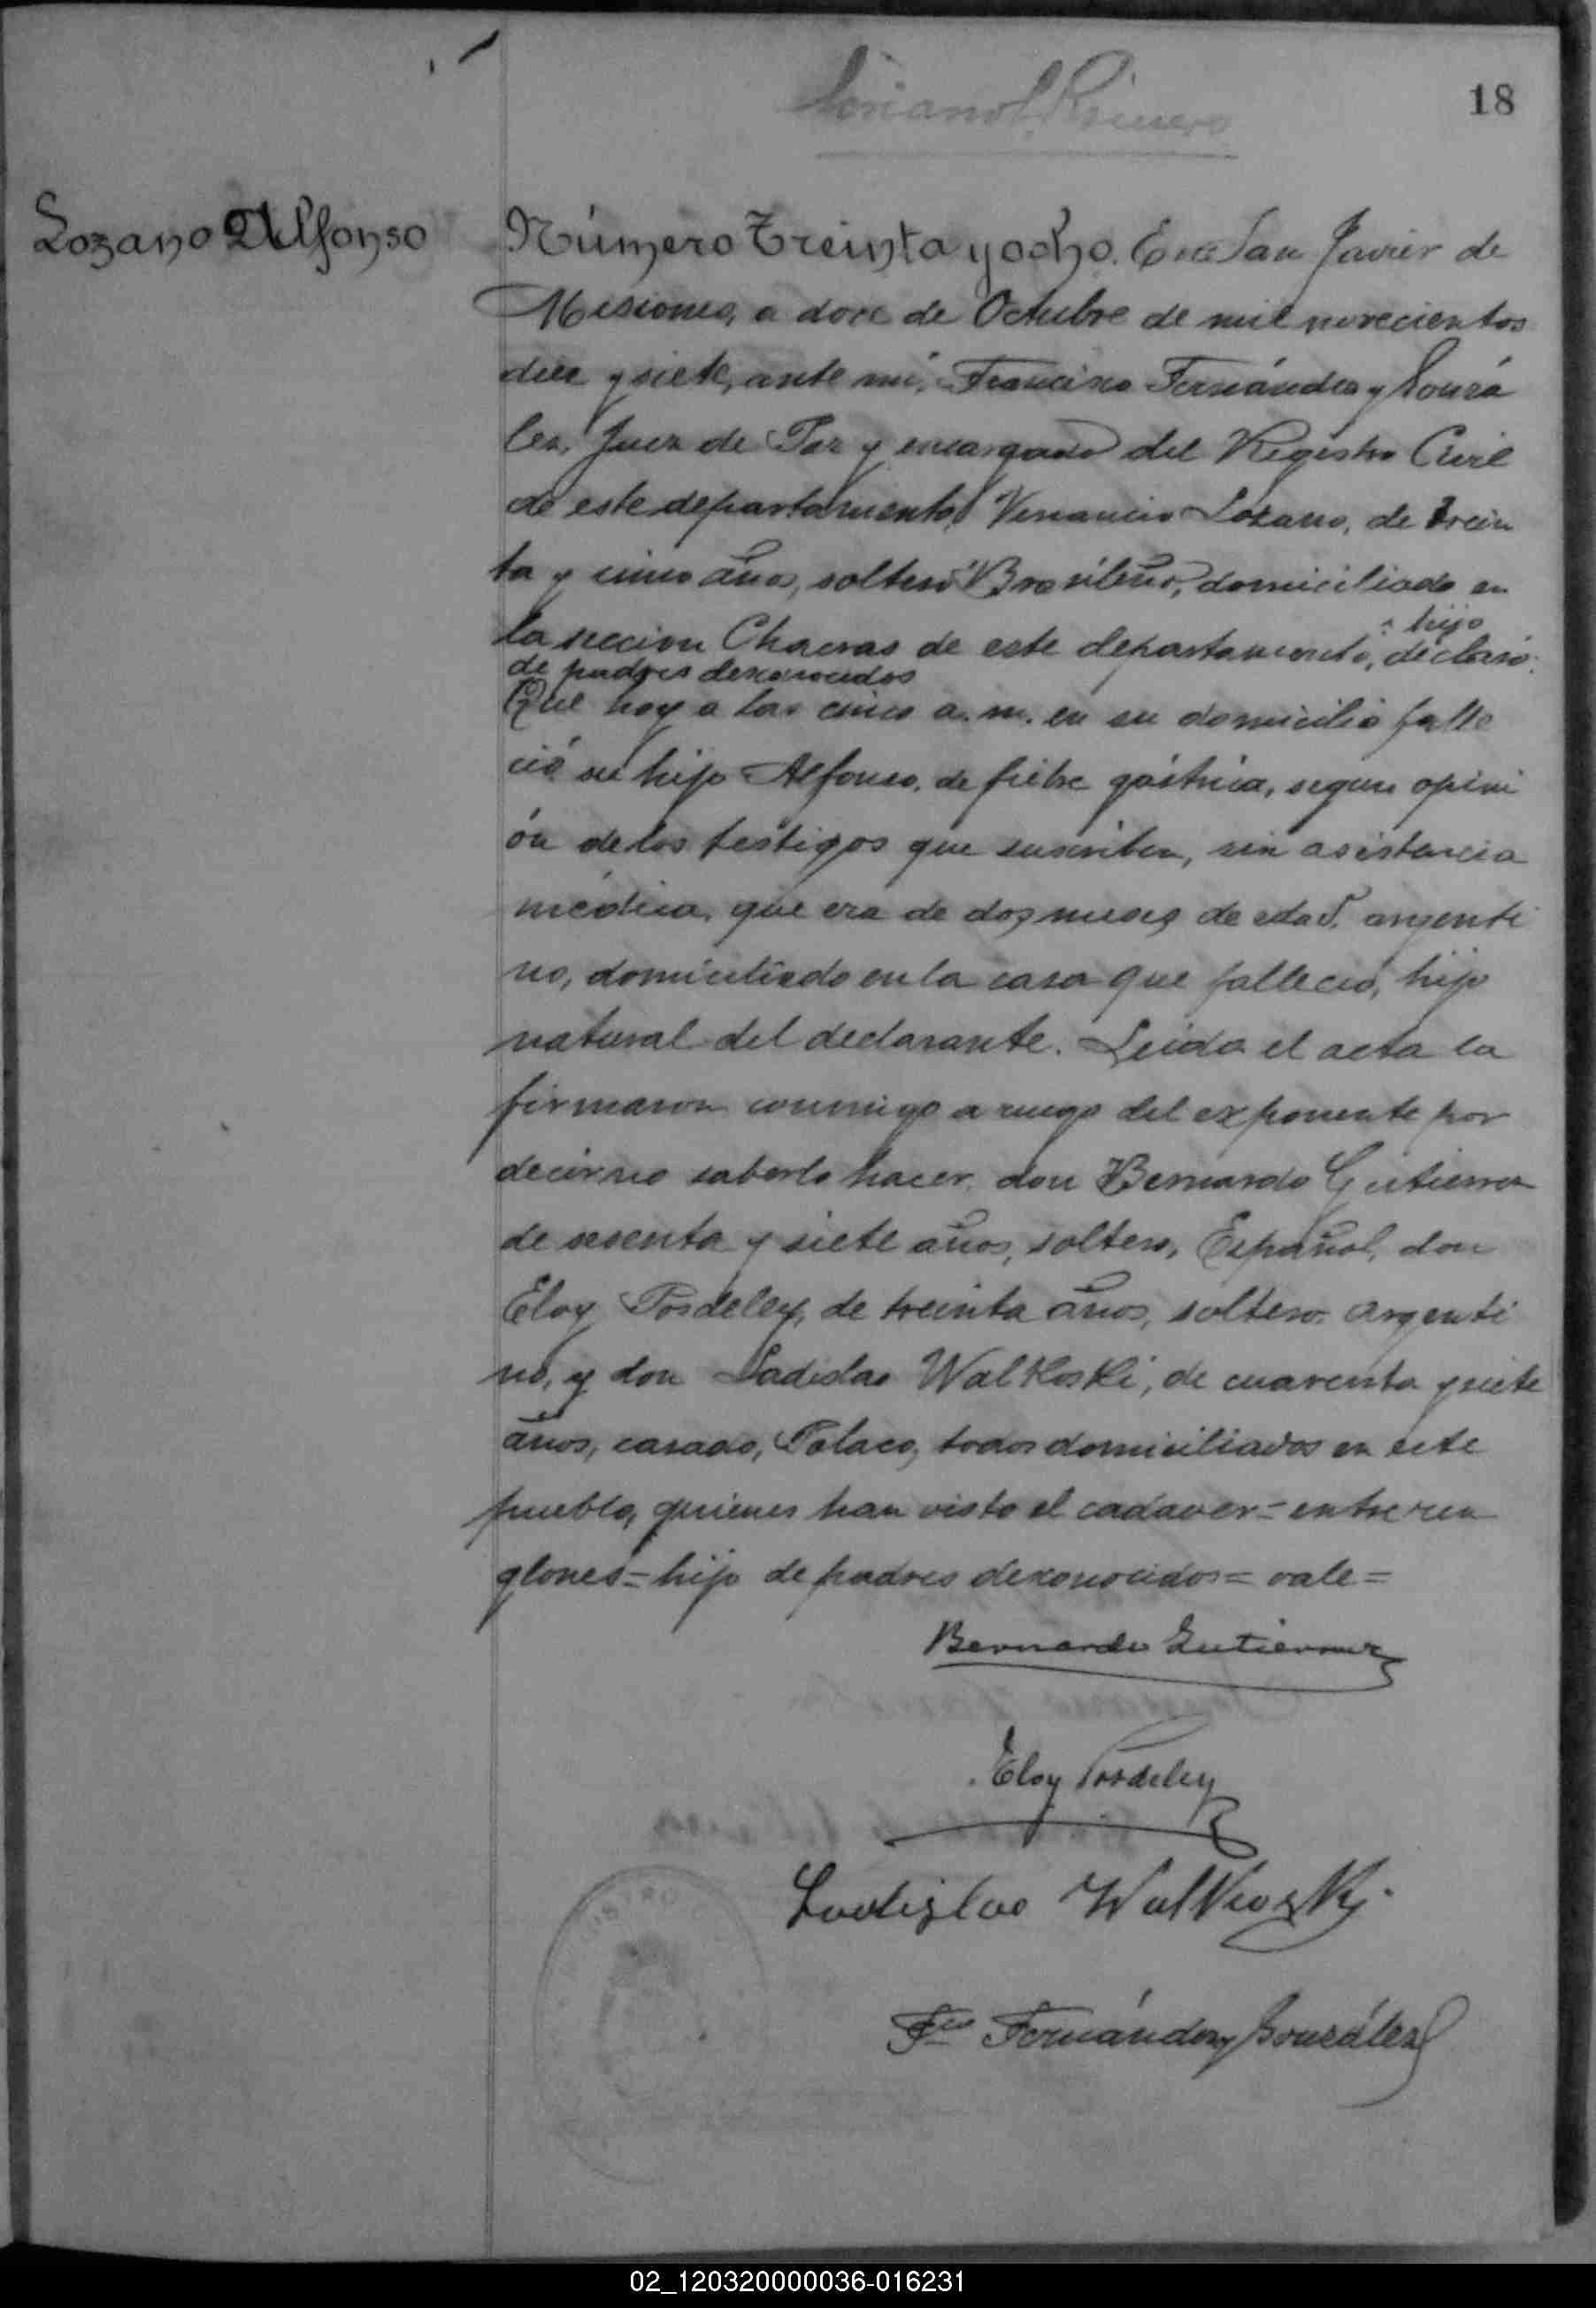 18
Lozano Alfonso
Número Treinta y ocho. En San Javier de
Misiones, a doce de Octubre de mil novecientos
diez y siete, ante mí, Francisco Fernández y Gonzá
lez, Juez de Paz y encargado del Registro Civil
de este departamento, Venancio Lozano, de trein
ta y cinco años, soltero, Brasileño, domiciliado en
la seccion Chacras de este departamento, hijo declaró:
de padres desconocidos
Que hoy a las cinco a. m. en su domicilio falle
ció su hijo Alfonso, de fiebre gástrica, segun opini
ón de los testigos que suscriben, sin asistencia
médica, que era de dos meses de edad, argenti
no, domiciliado en la casa que falleció, hijo
natural del declarante. Leida el acta la
firmaron conmigo a ruego del exponente por
decir no saberlo hacer, don Bernardo Gutierrez
de sesenta y siete años, soltero, Español, don
Eloy Posdeley, de treinta años, soltero, argenti
no, y don Ladislao Walkoski, de cuarenta y siete
años, casado, Polaco, todos domiciliados en este
pueblo, quienes han visto el cadaver = entre ren
glones = hijo de padres desconocidos = vale =
Bernardo Gutierrez
Eloy Posdeley
Ladislao
Fco Fernández y González
02_120320000036-016231